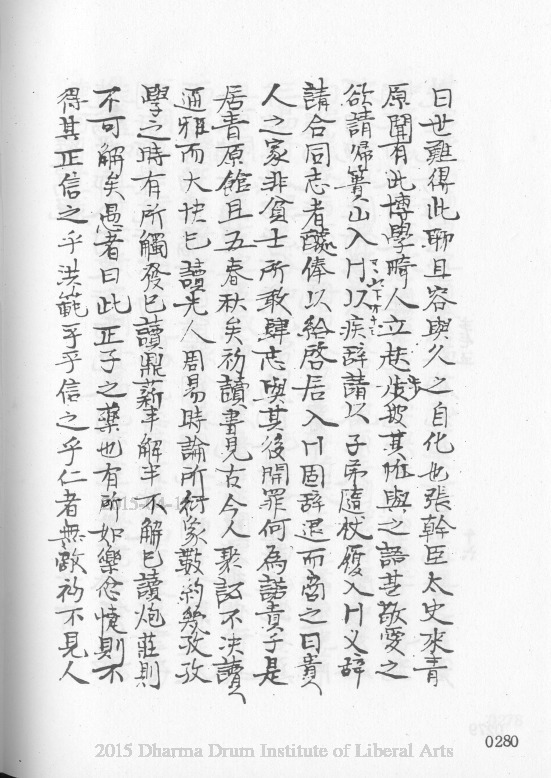 曰世難得此聊且容與久之自化也張幹臣太史來青
原聞有此博學畸人立起 其 與之語甚敬愛之
欲請歸簣山入门以疾辭請以子弟隨杖履入门又辭
請合同志者醵俸以給啓居入门固辭退而啻之曰貴人
人之家非貧士所敢肆志與其後開罪何為諾責乎是
居青原館且五春秋矣初讀書見古今人聚訟不決讀
通雅而大快已讀先人周易時論所衍象數約幾孜孜
學之時有所觸發已讀鼎薪半解半不解已讀炮莊則
不可解矣愚者曰此正子之藥也有所如樂忿懥則不
得其正信之乎洪範孚乎信之乎仁者無敵初不見人
2015 Dharma Drum Institute of Liberal Arts
0280